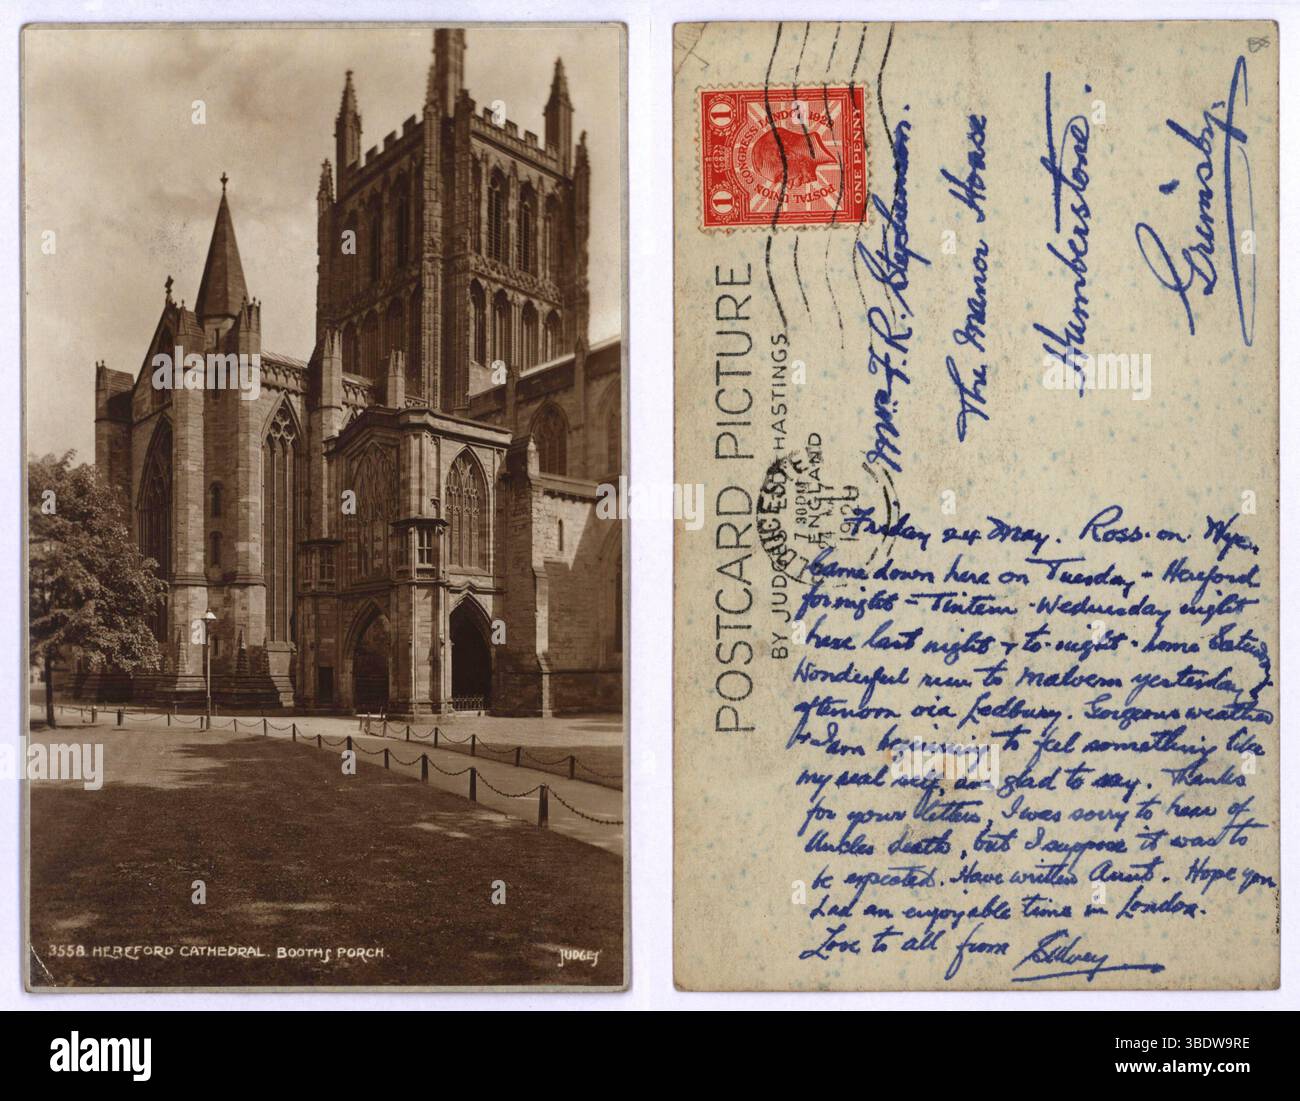 3558. HEREFORD CATHEDRAL. BOOTHS PORCH.
JUDGES
POSTCARD PICTURE
BY JUDGES LTD HASTINGS
ENGLAND
1 POSTAL UNION CONGRESS LONDON 1929 1
ONE PENNY
7 30PM
24 MY
192
Mrs. F. R. Stephenson.
The Manor House
Humberstone.
Grimsby.
Friday 24 May. Ross-on-Wye.
Came down here on Tuesday - Hereford
for night - Tintern - Wednesday night
here last night & to-night - home Saturday
Wonderful run to Malvern yesterday
afternoon via Ledbury. Gorgeous weather
& I am beginning to feel something like
my real self, am glad to say. Thanks
for your letters, I was sorry to hear of
Uncles death, but I suppose it was to
be expected. Have written Aunt. Hope you
had an enjoyable time in London.
Love to all from Sidney
alamy
Image ID: 3BDW9RE
www.alamy.com